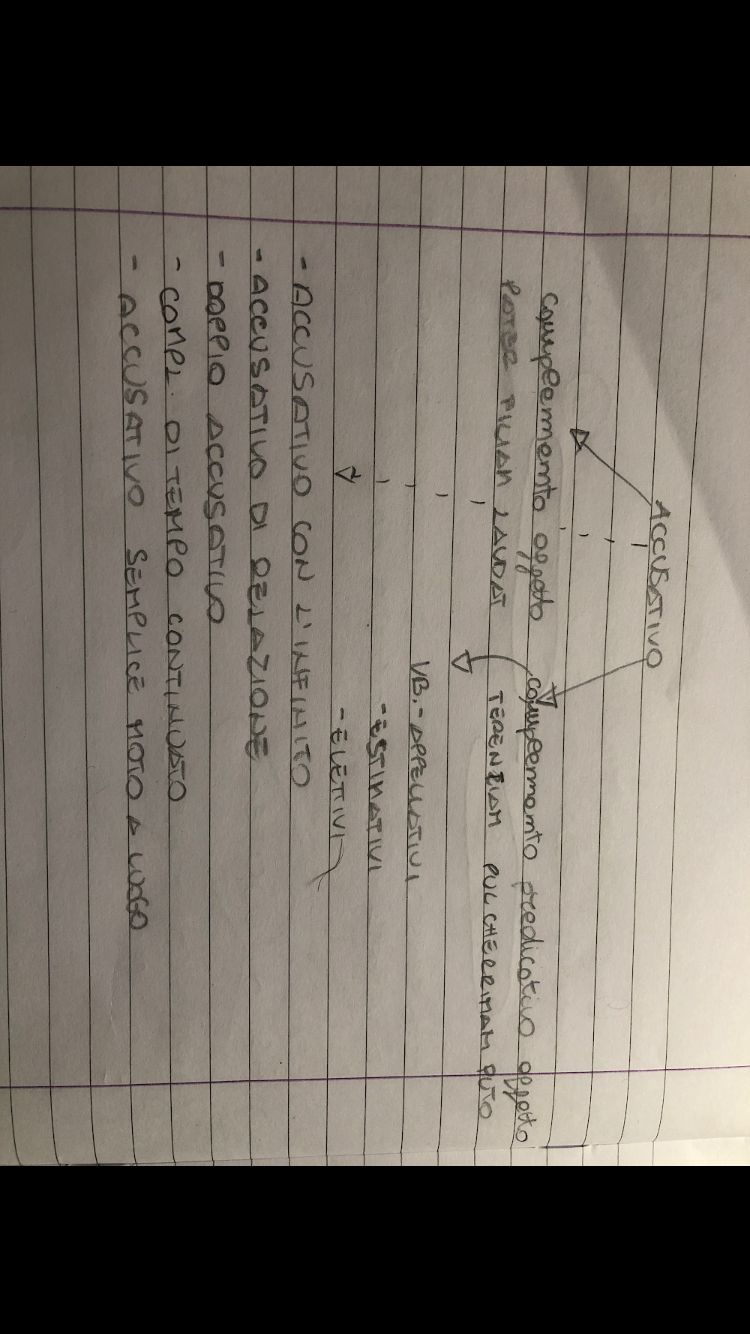 ACCUSATIVO
complemento oggetto
complemento predicativo oggetto
PATER FILIAM LAUDAT
TERENZIAM PULCHERRIMAM PUTO
VB. - APPELLATIVI
- ESTIMATIVI
- ELETTIVI
- ACCUSATIVO CON L'INFINITO
- ACCUSATIVO DI RELAZIONE
- DOPPIO ACCUSATIVO
- COMPL. DI TEMPO CONTINUATO
- ACCUSATIVO SEMPLICE MOTO A LUOGO